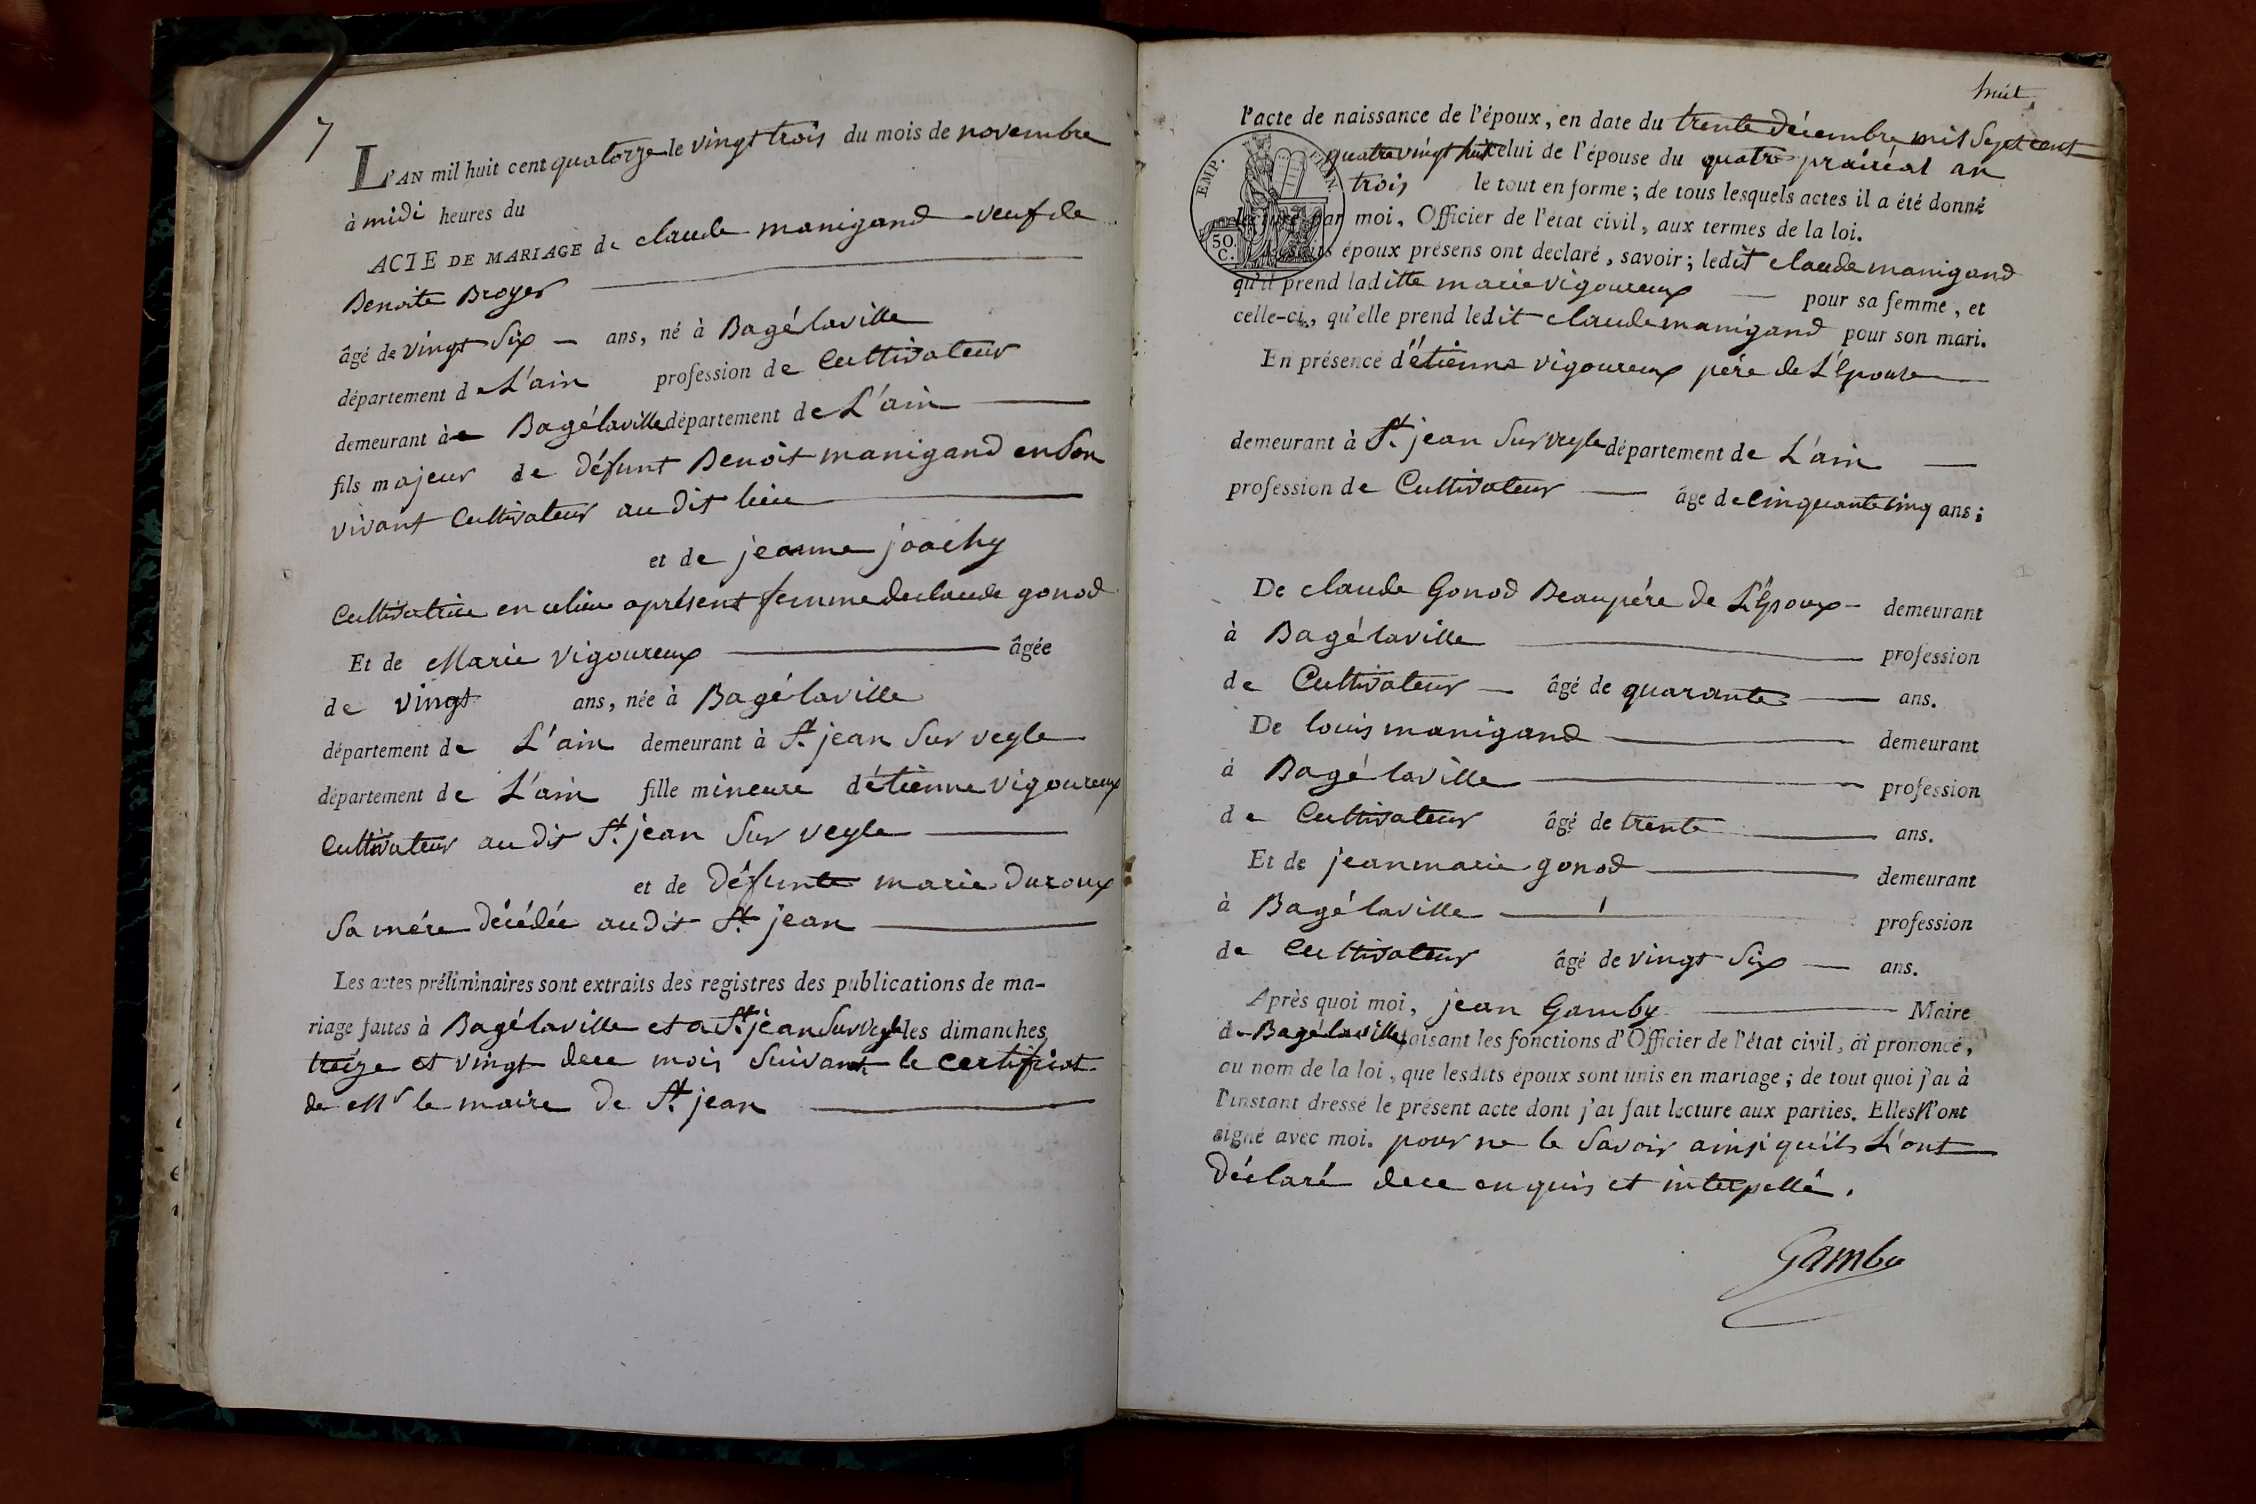 7
L'AN mil huit cent quatorze le vingt trois du mois de novembre
à midi heures du
ACTE DE MARIAGE de claude manigand veuf de
Benoite Broyer
âgé de vingt Six ans, né à Bagélaville
département de L'ain profession de Cultivateur
demeurant à Bagélaville département de L'ain
fils majeur de défunt Benoit manigand en Son
vivant Cultivateur au dit lieu
et de jeanne joachy
Cultivatrice en ce lieu aprésent femme de claude gonod
Et de Marie vigoureux âgée
de vingt ans, née à Bagélaville
département de L'ain demeurant à St. jean Sur vegle
département de L'ain fille mineure d'étienne vigoureux
Cultivateur au dit St. jean Sur vegle
et de défunte marie Duroux
Sa mére décédée au dit St. jean
Les actes préliminaires sont extraits des registres des publications de ma-
riage faites à Bagélaville et a St. jean Sur vegle les dimanches
treize et vingt dece mois Suivant le certificat
de Mr le maire de St. jean
huit
l'acte de naissance de l'époux, en date du trente décembre mil Sept cent
quatre vingt huit celui de l'épouse du quatre prairéal an
trois le tout en forme ; de tous lesquels actes il a été donné
lecture par moi, Officier de l'état civil, aux termes de la loi.
EMP. FRAN.
50. C.
Lesdits époux présens ont déclaré, savoir ; ledit claude manigand
qu'il prend laditte marie vigoureux pour sa femme, et
celle-ci, qu'elle prend ledit claude manigand pour son mari.
En présence d'étienne vigoureux pére de L'Epouse
demeurant à St. jean Sur vegle département de L'ain
profession de Cultivateur âgé de Cinquante cinq ans ;
De claude Gonod Beaupére de L'Epoux demeurant
à Bagélaville profession
de Cultivateur âgé de quarante ans.
De louis manigand demeurant
à Bagélaville profession
de Cultivateur âgé de trente ans.
Et de jeanmarie gonod demeurant
à Bagélaville profession
de Cultivateur âgé de vingt Six ans.
Après quoi moi, jean Gamby Maire
de Bagélaville faisant les fonctions d'Officier de l'état civil, ai prononcé,
au nom de la loi, que lesdits époux sont unis en mariage ; de tout quoi j'ai à
l'instant dressé le présent acte dont j'ai fait lecture aux parties. Elles N'ont
signé avec moi. pour ne le Savoir ainsi qu'ils L'ont
déclaré dece enquis et interpellé.
Gamby